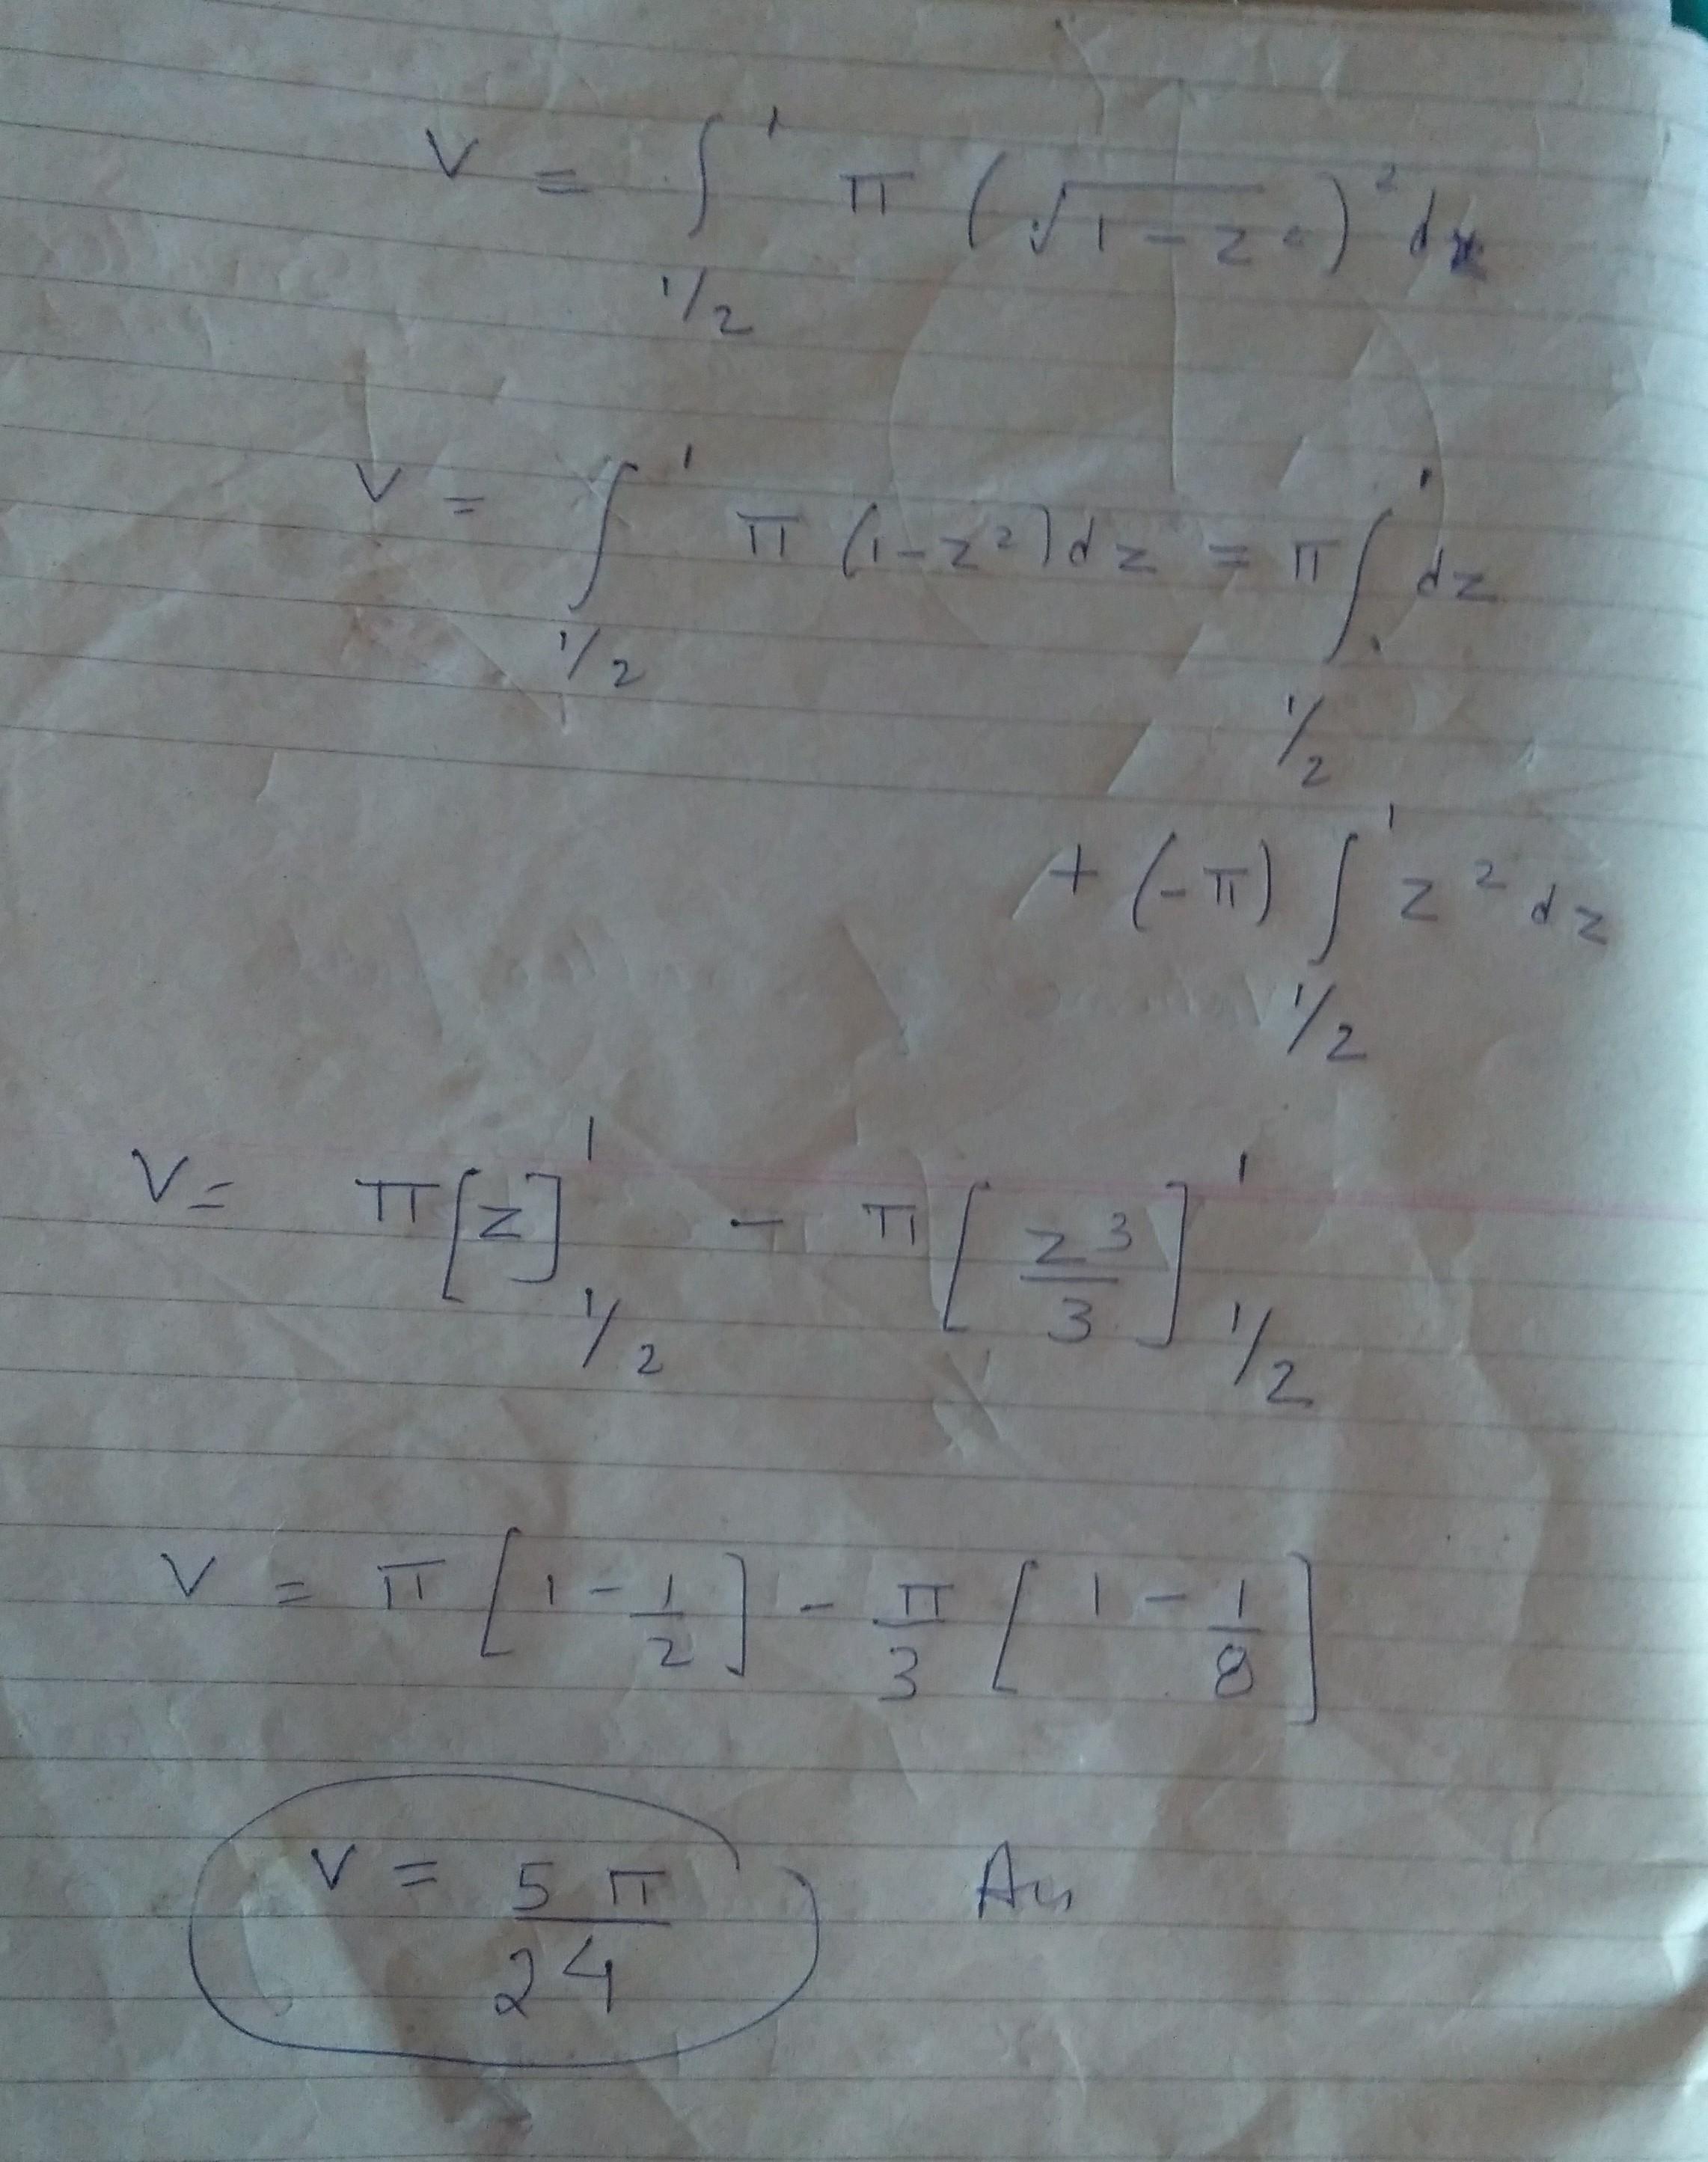 V = ∫_{1/2}^{1} π (√(1-z²))² dz
V = ∫_{1/2}^{1} π (1-z²) dz = π ∫_{1/2}^{1} dz
+ (-π) ∫_{1/2}^{1} z² dz
V = π [z]_{1/2}^{1} - π [z³/3]_{1/2}^{1}
V = π [1 - 1/2] - π/3 [1 - 1/8]
V = 5π/24 Ans